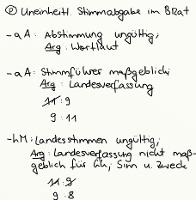 ② Uneinheitl. Stimmabgabe im BRat
- aA: Abstimmung ungültig;
Arg: Wortlaut
- aA: Stimmführer maßgeblich;
Arg: Landesverfassung
11 : 9
9 : 11
- hM: Landesstimmen ungültig;
Arg: Landesverfassung nicht maß-
geblich für hM; Sinn u. Zweck
11 : 9
9 : 8